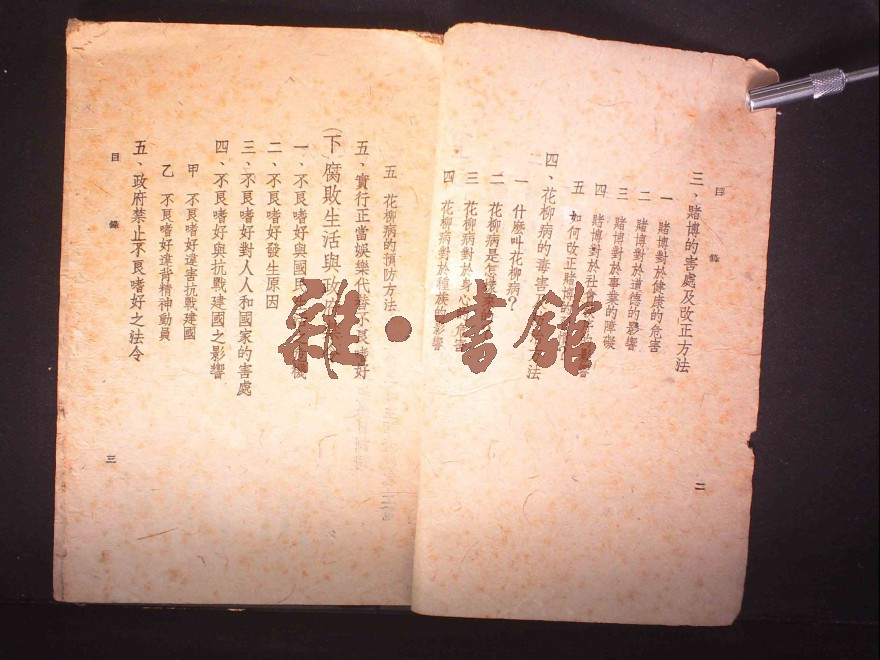 目錄
三、賭博的害處及改正方法
一 賭博對於健康的危害
二 賭博對於道德的影響
三 賭博對於事業的障礙
四 賭博對於社會
五 如何改正賭博的
四、花柳病的毒害 方法
一 什麼叫花柳病？
二 花柳病是怎樣
三 花柳病對於身心 危害
四 花柳病對於種族的影響
二
五 花柳病的預防方法
五、實行正當娛樂代替不良嗜好
(下) 腐敗生活與政府
一、不良嗜好與國民
二、不良嗜好發生原因
三、不良嗜好對人人和國家的害處
四、不良嗜好與抗戰建國之影響
甲 不良嗜好違害抗戰建國
乙 不良嗜好違背精神動員
五、政府禁止不良嗜好之法令
目錄
三
雜·書館